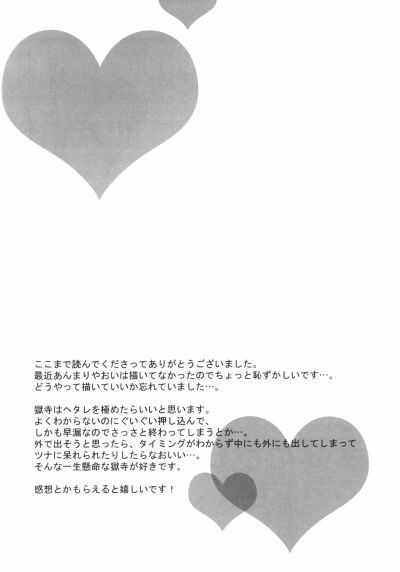 ここまで読んでくださってありがとうございました。
最近あんまりやおいは描いてなかったのでちょっと恥ずかしいです…。
どうやって描いていいか忘れていました…。
獄寺はヘタレを極めたらいいと思います。
よくわからないのにぐいぐい押し込んで、
しかも早漏なのでさっさと終わってしまうとか…。
外で出そうと思ったら、タイミングがわからず中にも外にも出してしまって
ツナに呆れられたりしたらなおいい…。
そんな一生懸命な獄寺が好きです。
感想とかもらえると嬉しいです！